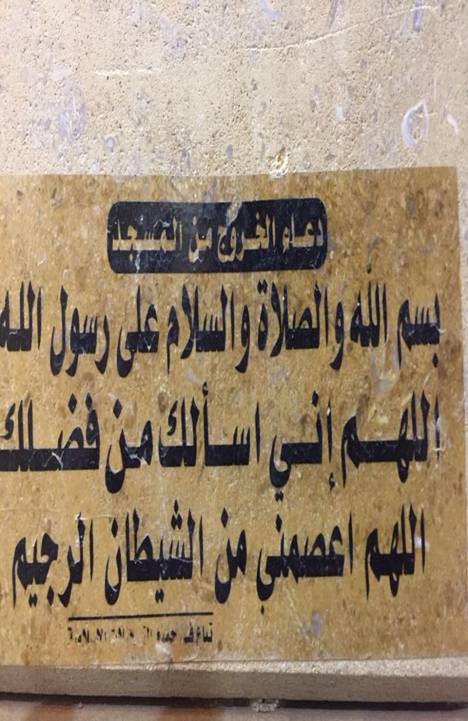 دعاء الخروج من المسجد
بسم الله والصلاة والسلام على رسول الله
اللهم إني اسألك من فضلك
اللهم اعصمني من الشيطان الرجيم